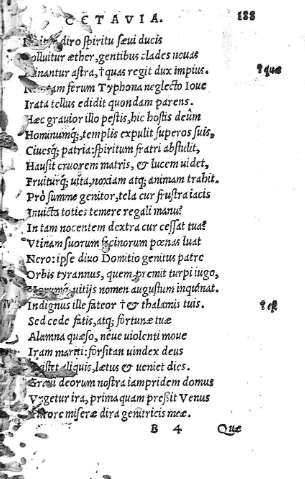 OCTAVIA. 188
diro spiritu sæui ducis
olluitur æther, gentibus clades nouas
inantur astra, † quas regit dux impius.
† quæ
am ferum Typhona neglecto Ioue
Irata tellus edidit quondam parens.
Hæc grauior illo pestis, hic hostis deûm
Hominumq́;, templis expulit superos suis,
Ciuesq́; patria: spiritum fratri abstulit,
Hausit cruorem matris, & lucem uidet,
Fruiturq́; uita, noxiam atq́; animam trahit.
Prò summe genitor, tela cur frustra iacis
Inuicta toties temere regali manu?
In tam nocentem dextra cur cessat tua?
Vtinam suorum facinorum pœnas luat
Nero: ipse diuo Domitio genitus patre
Orbis tyrannus, quem premit turpi iugo,
uitijs nomen augustum inquinat.
Indignus ille fateor † & thalamis tuis.
† est
Sed cede fatis, atq́; fortunæ tuæ
Alamna quæso, neue uiolenti moue
Iram mariti: forsitan uindex deus
aliquis, lætus & ueniet dies.
Graui deorum nostra iampridem domus
Vrgetur ira, prima quam pressit Venus
Furore miseræ dira genitricis meæ.
B 4 Quæ